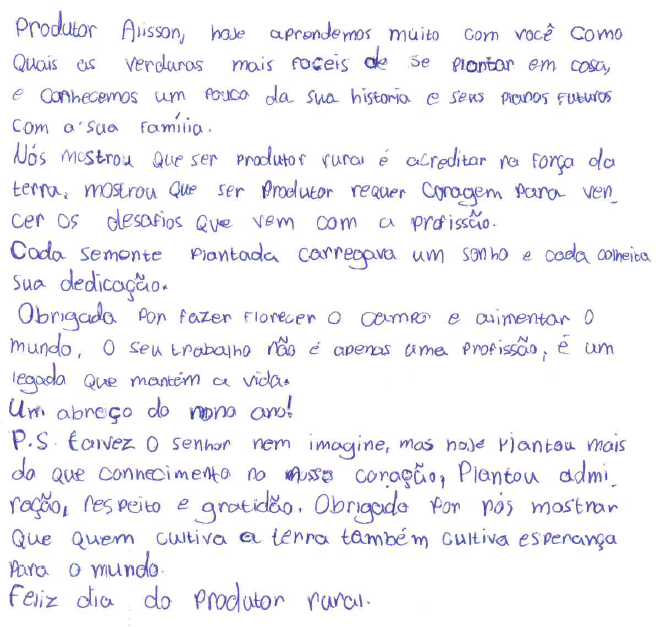 Produtor Alisson, hoje aprendemos muito com você como
Quais as verduras mais faceis de se plantar em casa,
e conhecemos um pouco da sua historia e seus planos futuros
com a sua família.
Nós mostrou que ser produtor rural é acreditar na força da
terra, mostrou que ser produtor requer coragem para ven_
cer os desafios que vem com a profissão.
Cada semente plantada carregava um sonho e cada colheita
sua dedicação.
Obrigada por fazer florecer o campo e alimentar o
mundo, o seu trabalho não é apenas uma profissão, é um
legada que mantém a vida.
Um abraço do nono ano!
P.S. talvez o senhor nem imagine, mas hoje plantou mais
do que conhecimento no nosso coração, Plantou admi_
ração, respeito e gratidão. Obrigada por nós mostrar
que quem cultiva a terra também cultiva esperança
para o mundo.
Feliz dia do produtor rural.